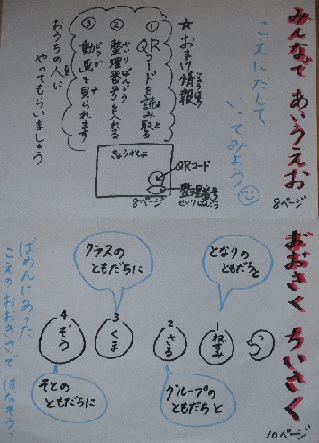 みんなで あいうえお
8ページ
こえにだして
いってみよう
★おまけ情報
じょうほう
①QRコードを読み取る
②整理番号を入れる
せいりばんごう
③動画を見られます
どうが
おうちの人に
やってもらいましょう
きょうかしょ
8ページ
QRコード
整理番号
せいりばんごう
おおきく ちいさく
10ページ
となりの
ともだちと
1
ねずみ
2
さる
グループの
ともだちと
3
くま
クラスの
ともだちに
4
ぞう
そとの
ともだちに
ばめんにあった
こえのおおきさで はなそう。